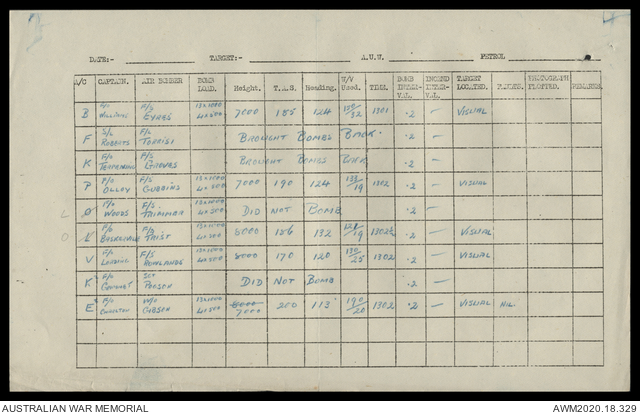 DATE:- TARGET:- A.U.W. PETROL
A/C CAPTAIN. AIR BOMBER BOMB LOAD. Height. T.A.S. Heading. W/V Used. TIME. BOMB INTERVAL. INCEND INTERVAL. TARGET LOCATED. PHOTOGRAPH PLOTTED. REMARKS.
B WILLIAMS F/S EYRES 13x1000 4x500 7000 185 124 1301 .2 — VISUAL
F S/L ROBERTS F/S TORRISI BROUGHT BOMBS BACK. .2 —
K F/O F/S GROVES BROUGHT BOMBS BACK .2 —
P F/O OLLEY F/S GUBBINS 13x1000 4x500 7000 190 124 133/19 1302 .2 — VISUAL
L O P/O WOODS F/S. TRIMMER 13x1000 4x500 DID NOT BOMB .2 —
O L F/O F/S TAIST 13x1000 4x500 8000 186 132 /19 1302½ .2 — VISUAL
V F/O F/S ROWLANDS 13x1000 4x500 8000 170 120 130/25 1302 .2 — VISUAL
K² F/O SGT DID NOT BOMB
E² F/O W/O GIBSON 13x1000 4x500 8000 7000 200 113 190/20 1302 .2 — VISUAL NIL.
AUSTRALIAN WAR MEMORIAL
AWM2020.18.329